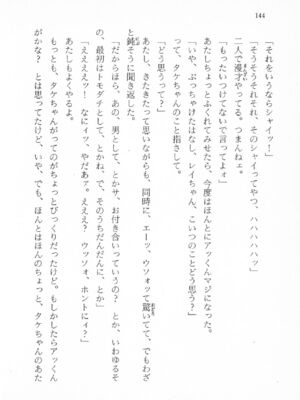 144
「それをいうならシャイッ！」
「そうそうそれそれ、そのシャイってやつ、ハハハハハッ」
二人で漫才やってる。つまんねェ。
「もったいつけてないで言ってよォ」
あたしちょっとふくれてみせたら、今度はほんとにアッくんマジになった。
「いや、ぶっちゃけたはなし、レイちゃん、こいつのことどう思う？」
って、タケちゃんのこと指さして。
「どう思うって？」
あたし、きたきたって思いながらも、同時に、エーッ、ウソォッて驚いてて、でもわざ
と鈍そうに聞き返した。
「だからほら、あの、男として、とかサ、お付き合いっていうの？　とか、いわゆるそ
の、最初はトモダチとして、とかね、で、そのうちだんだんに、とか」
「えええエッ！　なにィッ、やだあァ。えええ？　ウッソォ、ホントにィ？」
あたしもよくやる。
もっとも、タケちゃんがってのがちょっとびっくりだったけど。もしかしたらアッくん
がかな？　とは思ってたけど、いや、でも、ほんとはほんのちょっと、タケちゃんのあた